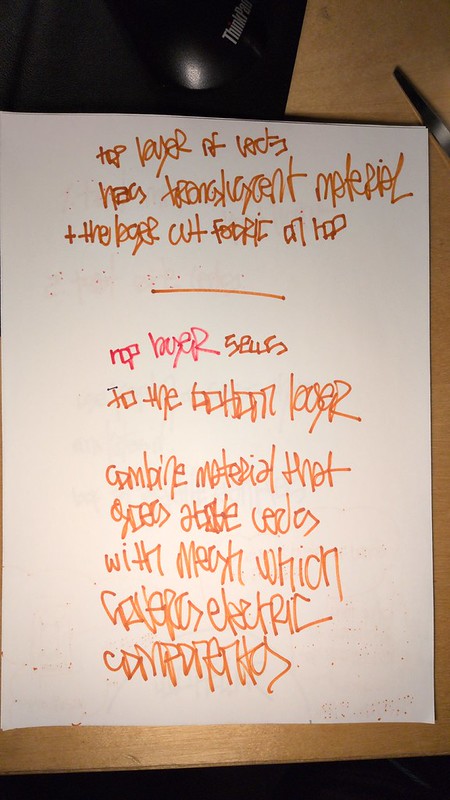 ThinkPad
top layer of leds
has translucent material
+ the laser cut fabric on top
top layer sews
to the bottom layer
combine material that
goes above leds
with mesh which
covers electric
components